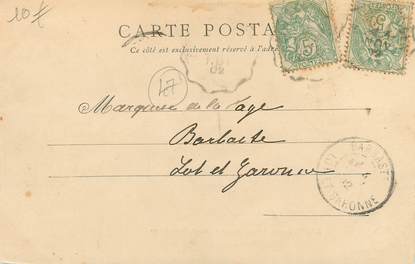 10 f
CARTE POSTA
Ce côté est exclusivement réservé à l'adre
5c
02
47
Marquise de la Page
Barbaste
Lot et Garonne
BARBASTE
GARONNE